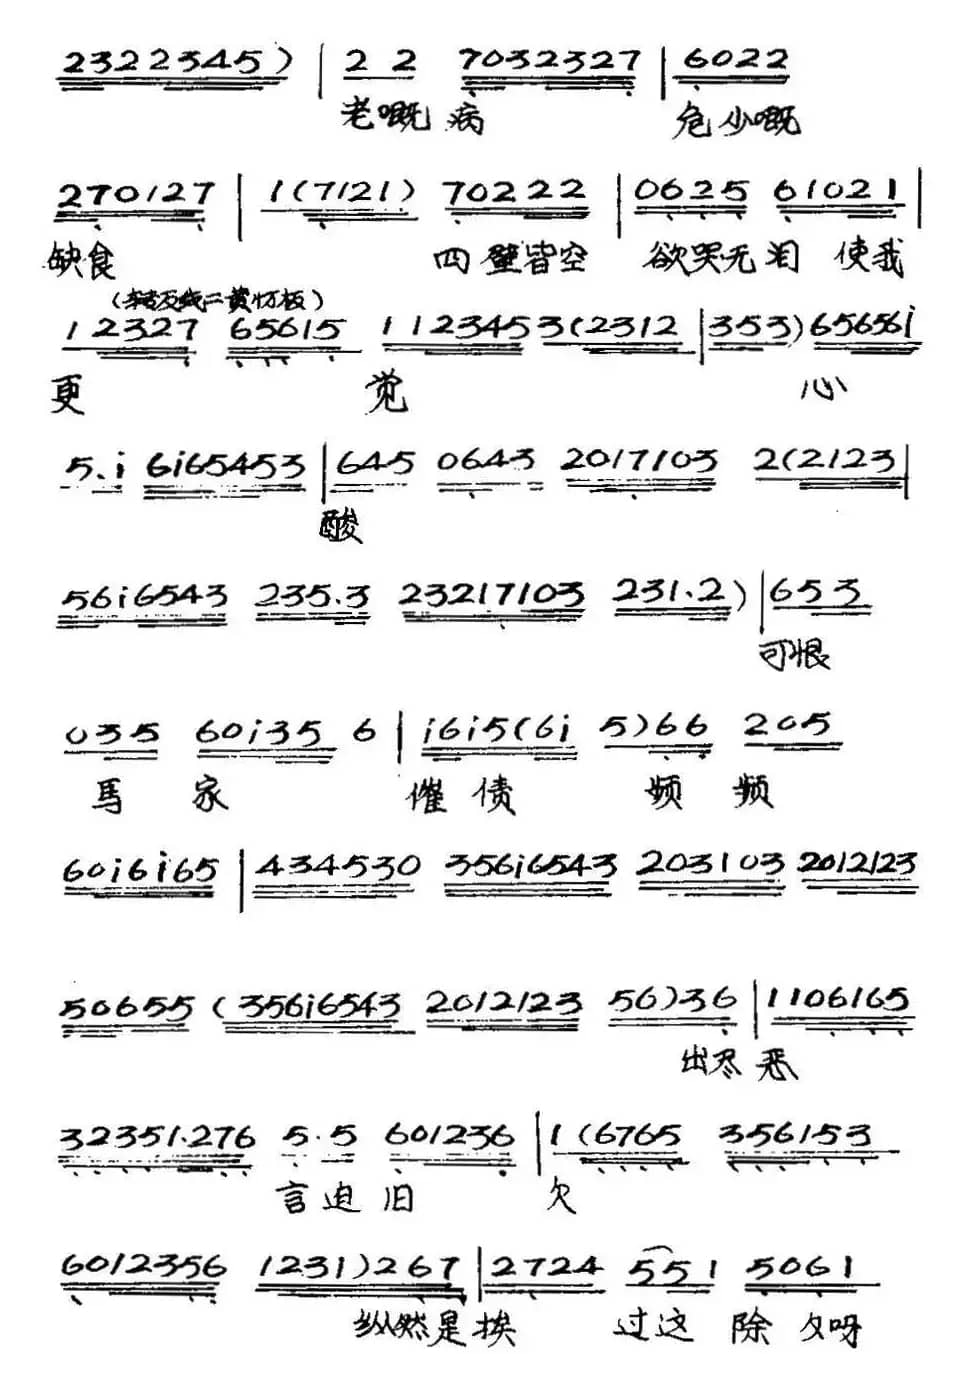 2322345) | 2 2 7032327 | 6022
老嘅病 危少嘅
270127 | 1(7121) 70222 | 0625 61021 |
缺食 四壁皆空 欲哭无泪 使我
(转反线二黄忭板)
1 2327 65615 1123453(2312 | 353)65656i
更 觉 心
5.i 6i65453 | 645 0643 2017103 2(2123 |
酸
56i6543 235.3 23217103 231.2) | 653
可恨
035 60i35 6 | i6i5(6i 5)66 205
馬 家 催 债 频 频
60i6i65 | 434530 356i6543 203103 2012123
50655 (356i6543 2012123 56)36 | 1106165
出尽恶
32351.276 5.5 601236 | 1(6765 356153
言迫旧 欠
6012356 1231)267 | 2724 551 5061
纵然是挨 过这 除夕呀